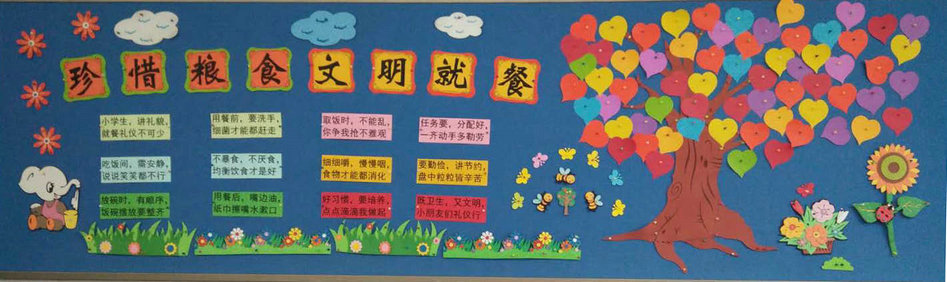 珍惜粮食文明就餐
小学生，讲礼貌，
就餐礼仪不可少
用餐前，要洗手，
细菌才能都赶走
取饭时，不能乱，
你争我抢不雅观
任务要，分配好，
一齐动手多勤劳
吃饭间，需安静，
说说笑笑都不行
不暴食，不厌食，
均衡饮食才是好
细细嚼，慢慢咽，
食物才能都消化
要勤俭，讲节约，
盘中粒粒皆辛苦
放碗时，有顺序，
饭碗摆放要整齐
用餐后，嘴边油，
纸巾擦嘴水漱口
好习惯，要培养，
点点滴滴我做起
既卫生，又文明，
小朋友们礼仪行